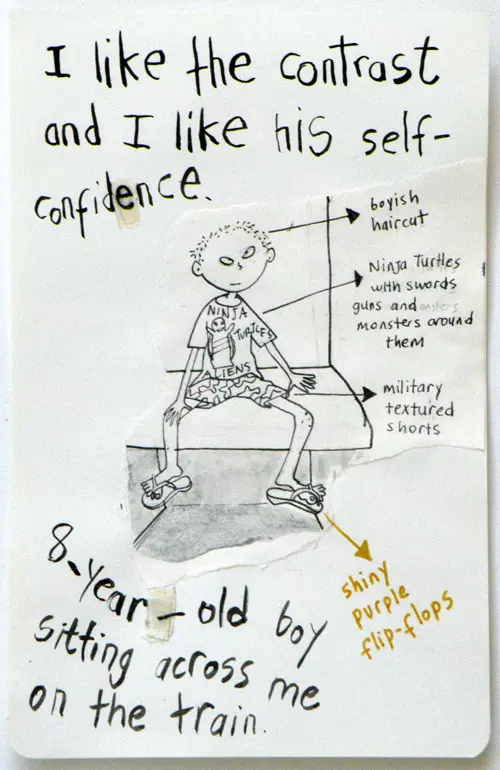 I like the contrast
and I like his self-
confidence.
boyish
haircut
Ninja Turtles
with swords
guns and
monsters around
them
NINJA
TURTLES
IENS
military
textured
shorts
shiny
purple
flip-flops
8-year-old boy
sitting across me
on the train.